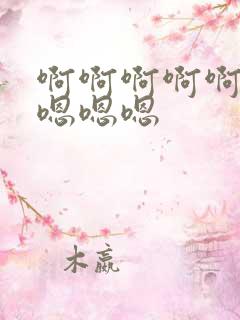 啊啊啊啊啊
嗯嗯嗯
木嬴